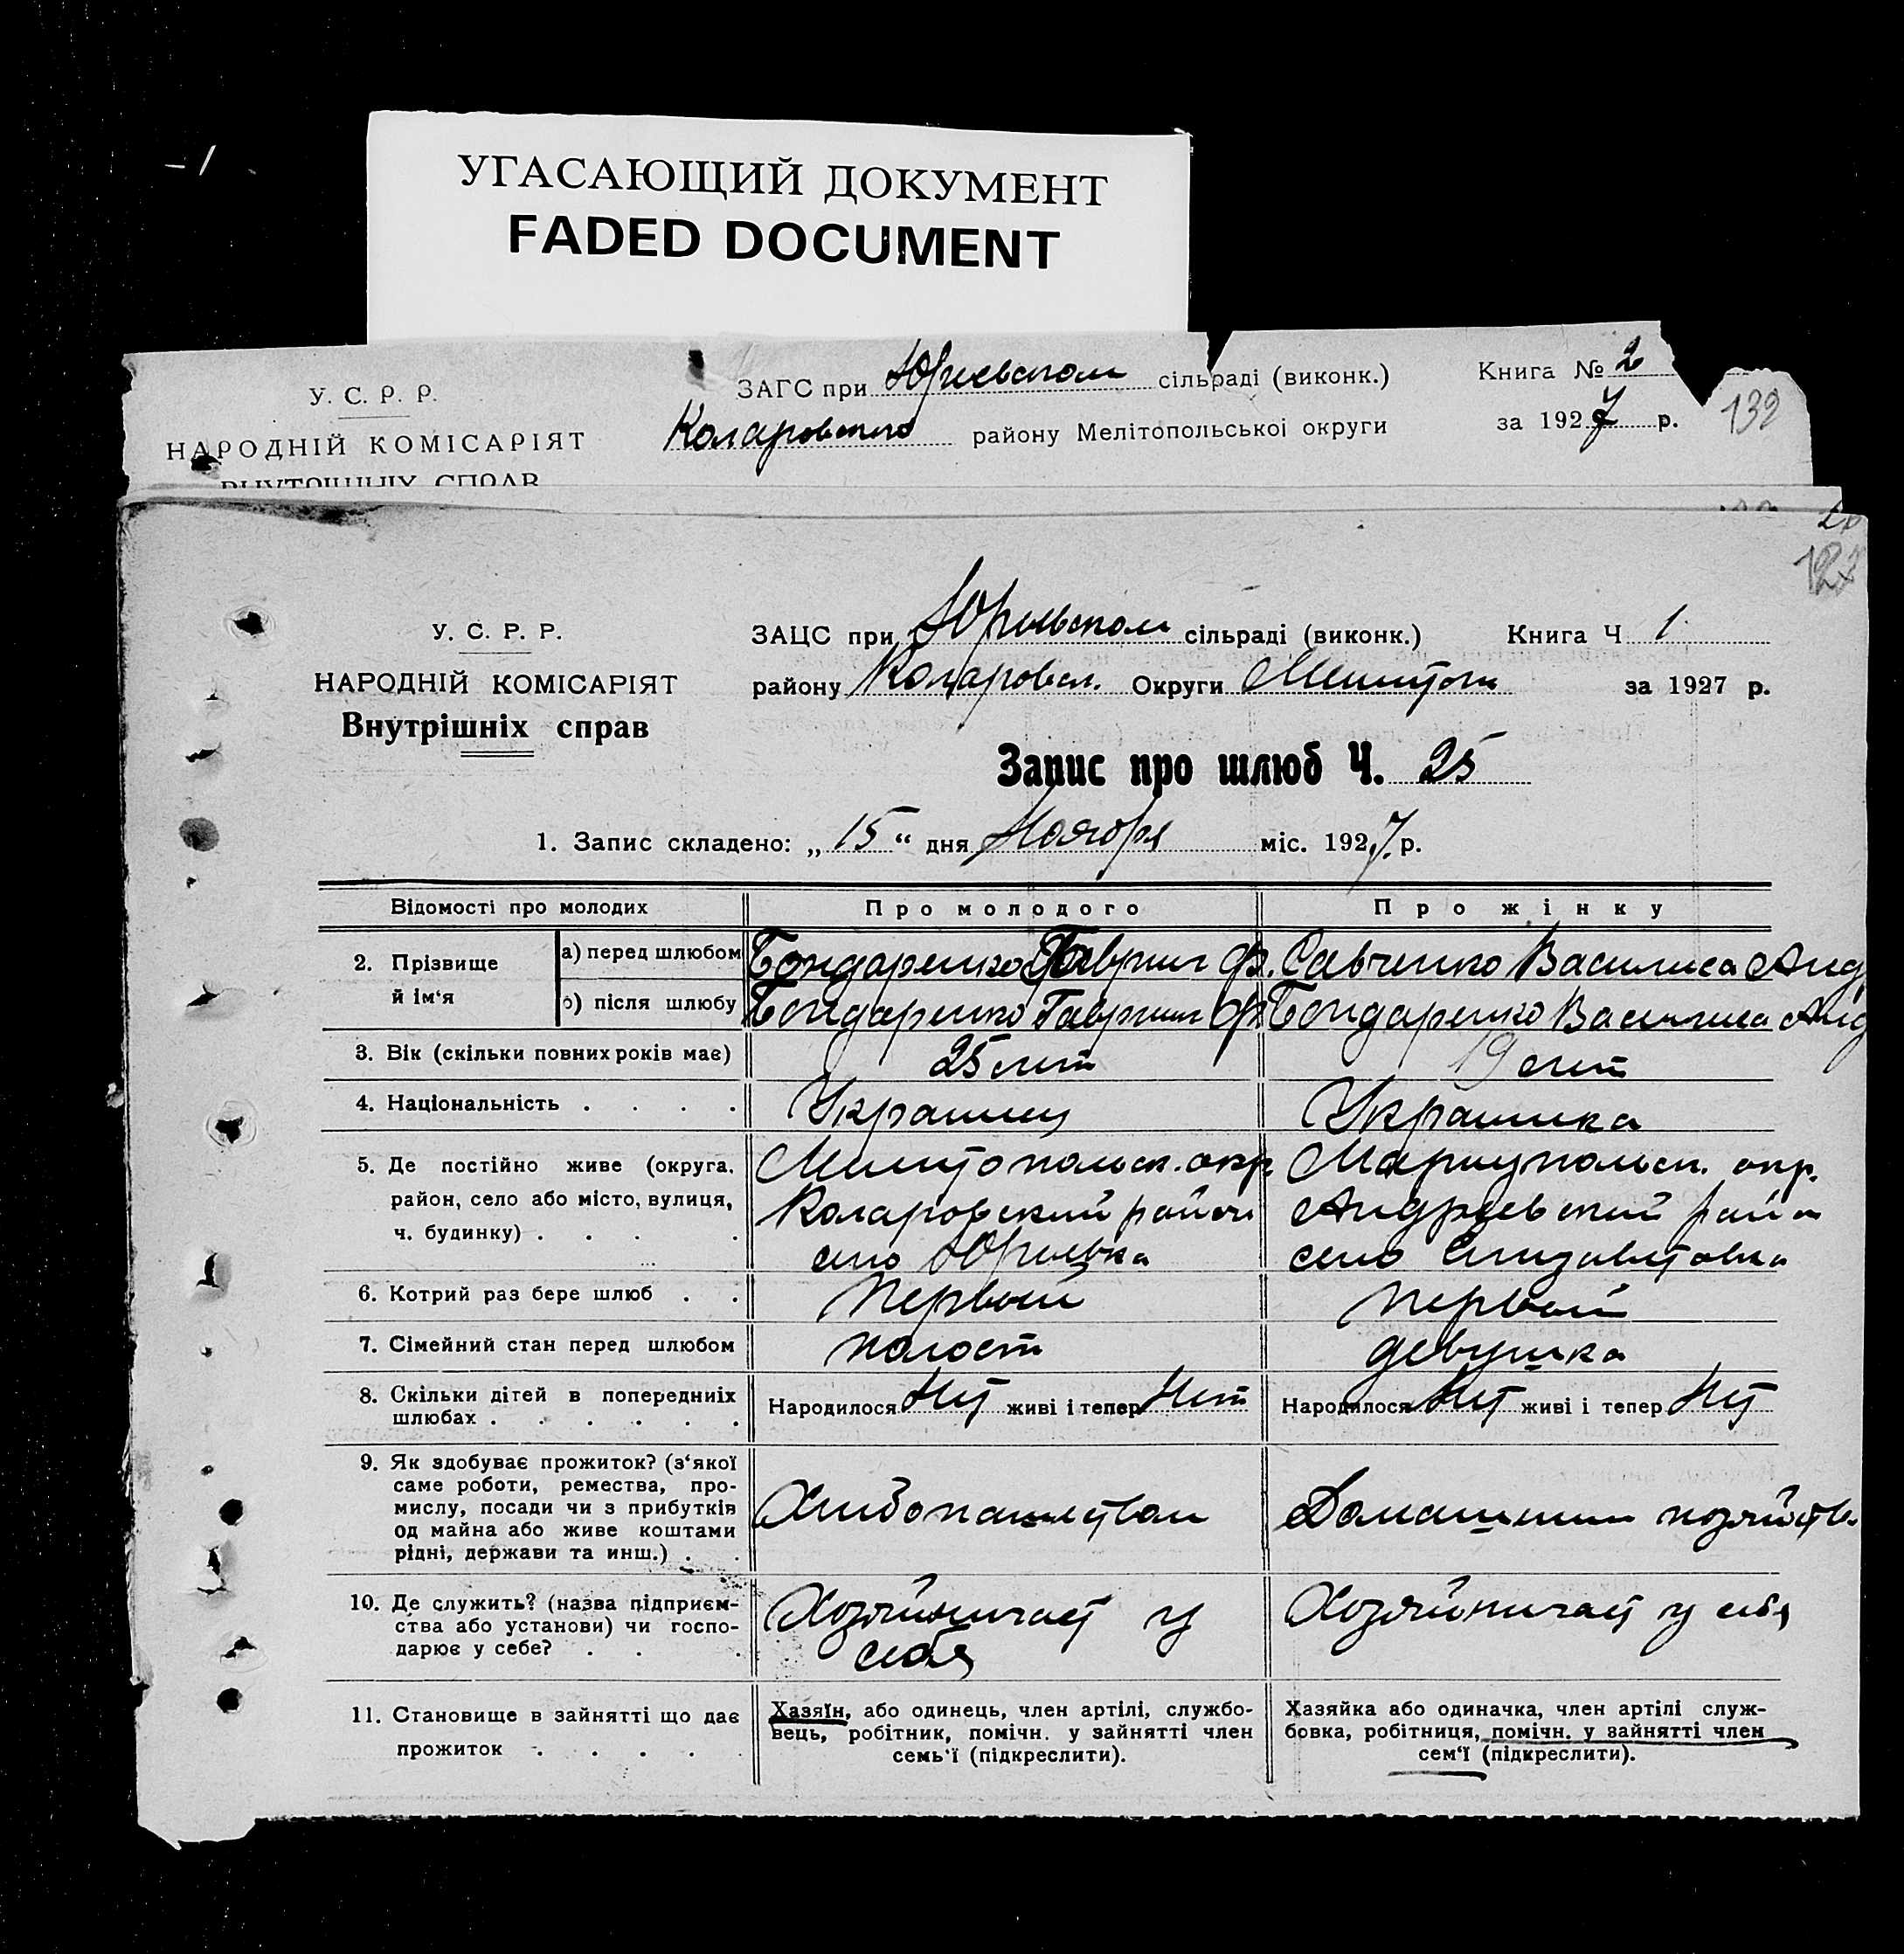 УГАСАЮЩИЙ ДОКУМЕНТ
FADED DOCUMENT
У. С. Р. Р.
НАРОДНІЙ КОМІСАРІЯТ
ВНУТРІШНІХ СПРАВ
ЗАГС при Юрьевском сільраді (виконк.)
Коларовского району Мелітопольської округи
Книга № 2
за 1927 р.
132
127
У. С. Р. Р.
НАРОДНІЙ КОМІСАРІЯТ
Внутрішніх справ
ЗАЦС при Юрьевском сільраді (виконк.)
району Коларовск. Округи Мелитоп
Книга Ч 1
за 1927 р.
Запис про шлюб Ч. 25
1. Запис складено: „15“ дня Ноября міс. 1927 р.
Відомості про молодих
Про молодого
Про жінку
2. Прізвище й ім‘я
а) перед шлюбом
Бондаренко Гавриил Ф.
Савченко Василиса Анд
б) після шлюбу
Бондаренко Гавриил Ф
Бондаренко Василиса Анд
3. Вік (скільки повних років має)
25 лет
19 лет
4. Національність . . . .
Украинец
Украинка
5. Де постійно живе (округа,
район, село або місто, вулиця,
ч. будинку) . . . .
Мелитопольск. окр.
Коларовский район
село Юрьевка
Мариупольск. окр.
Андреевский район
село Елизаветовка
6. Котрий раз бере шлюб . .
Первый
первый
7. Сімейний стан перед шлюбом
холост
девушка
8. Скільки дітей в попередніх
шлюбах . . . . . .
Народилося Нет живі і тепер Нет
Народилося Нет живі і тепер Нет
9. Як здобуває прожиток? (з‘якої
саме роботи, ремества, про-
мислу, посади чи з прибутків
од майна або живе коштами
рідні, держави та инш.) . .
Хлебопашеством
Домашним хозяйств.
10. Де служить? (назва підприєм-
ства або установи) чи госпо-
дарює у себе? . . .
Хозяйничает у
себя
Хозяйничает у себя
11. Становище в зайнятті що дає
прожиток . . . . .
Хазяїн, або одинець, член артілі, службо-
вець, робітник, помічн. у зайнятті член
семь‘ї (підкреслити).
Хазяйка або одиначка, член артілі служ-
бовка, робітниця, помічн. у зайнятті член
сем‘ї (підкреслити).